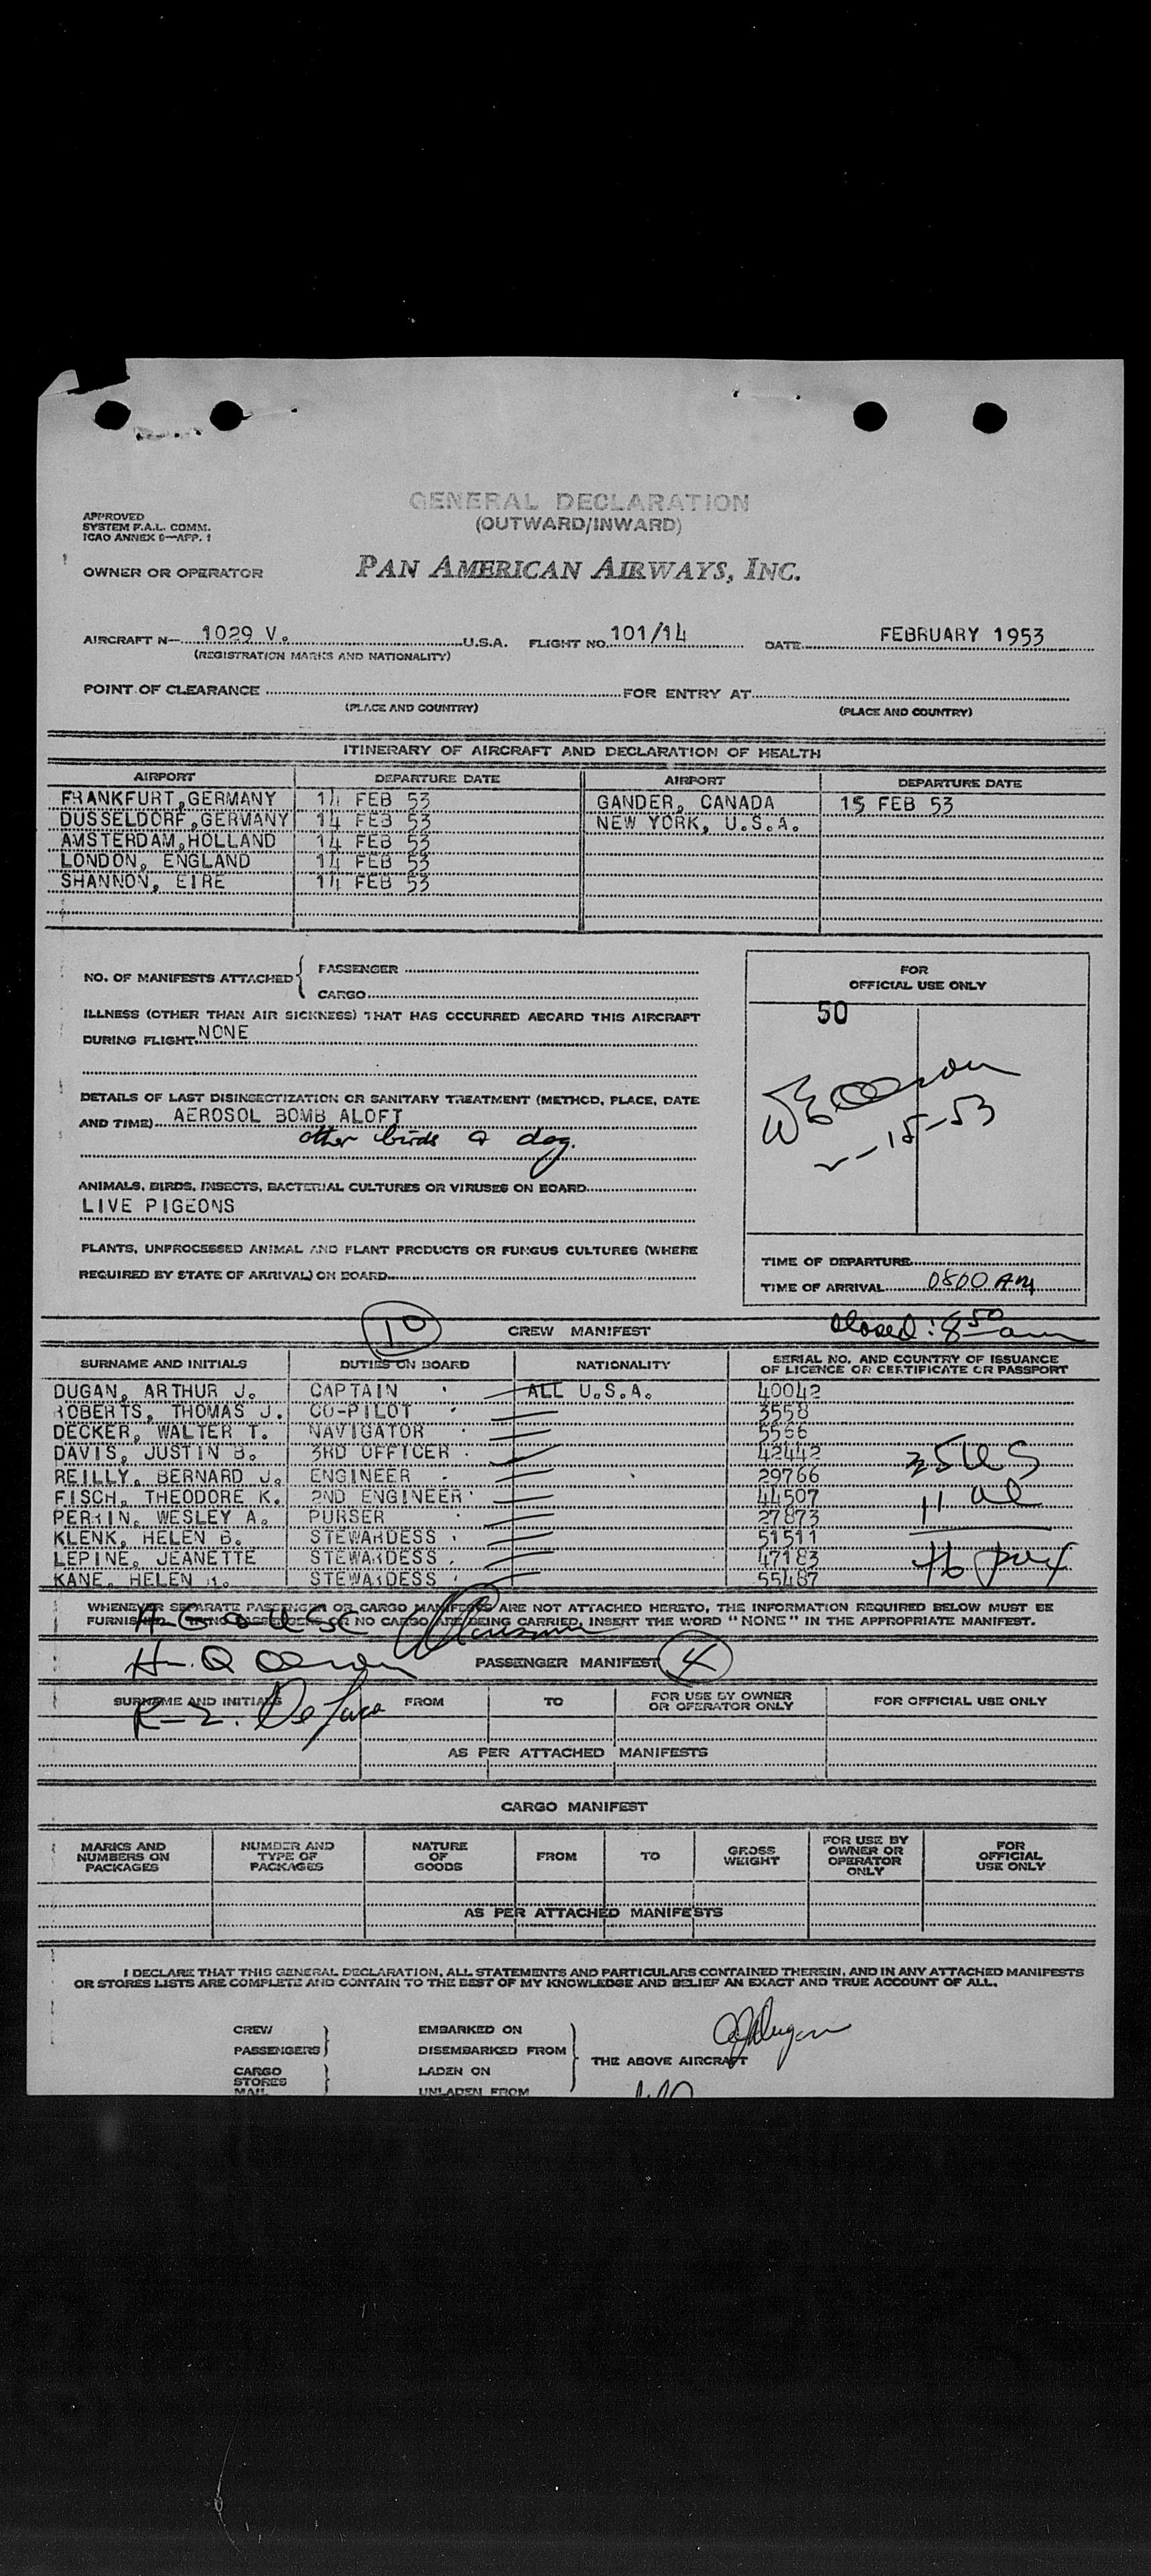 GENERAL DECLARATION
(OUTWARD/INWARD)
APPROVED
SYSTEM P.A.L. COMM.
ICAO ANNEX 9—APP. 1
OWNER OR OPERATOR PAN AMERICAN AIRWAYS, INC.
AIRCRAFT N— 1029 V. U.S.A. FLIGHT NO. 101/14 DATE FEBRUARY 1953
(REGISTRATION MARKS AND NATIONALITY)
POINT OF CLEARANCE FOR ENTRY AT
(PLACE AND COUNTRY) (PLACE AND COUNTRY)
ITINERARY OF AIRCRAFT AND DECLARATION OF HEALTH
AIRPORT DEPARTURE DATE AIRPORT DEPARTURE DATE
FRANKFURT,GERMANY 14 FEB 53 GANDER, CANADA 15 FEB 53
DUSSELDORF,GERMANY 14 FEB 53 NEW YORK, U.S.A.
AMSTERDAM,HOLLAND 14 FEB 53
LONDON, ENGLAND 14 FEB 53
SHANNON, EIRE 14 FEB 53
NO. OF MANIFESTS ATTACHED { PASSENGER
CARGO
FOR
OFFICIAL USE ONLY
50
ILLNESS (OTHER THAN AIR SICKNESS) THAT HAS OCCURRED ABOARD THIS AIRCRAFT
DURING FLIGHT. NONE
DETAILS OF LAST DISINSECTIZATION OR SANITARY TREATMENT (METHOD, PLACE, DATE
AND TIME) AEROSOL BOMB ALOFT
other birds & dog.
2-15-53
ANIMALS, BIRDS, INSECTS, BACTERIAL CULTURES OR VIRUSES ON BOARD
LIVE PIGEONS
PLANTS, UNPROCESSED ANIMAL AND PLANT PRODUCTS OR FUNGUS CULTURES (WHERE
REQUIRED BY STATE OF ARRIVAL) ON BOARD
TIME OF DEPARTURE
TIME OF ARRIVAL 0800 AM
closed: 8 50 am
10 CREW MANIFEST
SURNAME AND INITIALS DUTIES ON BOARD NATIONALITY SERIAL NO. AND COUNTRY OF ISSUANCE
OF LICENCE OR CERTIFICATE OR PASSPORT
DUGAN, ARTHUR J. CAPTAIN ALL U.S.A. 40042
ROBERTS, THOMAS J. CO-PILOT 3558
DECKER, WALTER T. NAVIGATOR 5566
DAVIS, JUSTIN B. 3RD OFFICER 42442
REILLY, BERNARD J. ENGINEER 29766
FISCH, THEODORE K. 2ND ENGINEER 44507
PERRIN, WESLEY A. PURSER 27873
KLENK, HELEN B. STEWARDESS 51511
LEPINE, JEANETTE STEWARDESS 47183
KANE, HELEN STEWARDESS 55487
35 US
11 al
46
WHENEVER SEPARATE PASSENGER OR CARGO MANIFESTS ARE NOT ATTACHED HERETO, THE INFORMATION REQUIRED BELOW MUST BE
FURNISHED. IF NO PASSENGERS OR NO CARGO ARE BEING CARRIED, INSERT THE WORD "NONE" IN THE APPROPRIATE MANIFEST.
PASSENGER MANIFEST 4
SURNAME AND INITIALS FROM TO FOR USE BY OWNER
OR OPERATOR ONLY FOR OFFICIAL USE ONLY
De Luca
AS PER ATTACHED MANIFESTS
CARGO MANIFEST
MARKS AND
NUMBERS ON
PACKAGES
NUMBER AND
TYPE OF
PACKAGES
NATURE
OF
GOODS
FROM
TO
GROSS
WEIGHT
FOR USE BY
OWNER OR
OPERATOR
ONLY
FOR
OFFICIAL
USE ONLY
AS PER ATTACHED MANIFESTS
I DECLARE THAT THIS GENERAL DECLARATION, ALL STATEMENTS AND PARTICULARS CONTAINED THEREIN, AND IN ANY ATTACHED MANIFESTS
OR STORES LISTS ARE COMPLETE AND CONTAIN TO THE BEST OF MY KNOWLEDGE AND BELIEF AN EXACT AND TRUE ACCOUNT OF ALL.
CREW EMBARKED ON
PASSENGERS DISEMBARKED FROM
CARGO LADEN ON
STORES
MAIL UNLADEN FROM
THE ABOVE AIRCRAFT
AJ Dugan